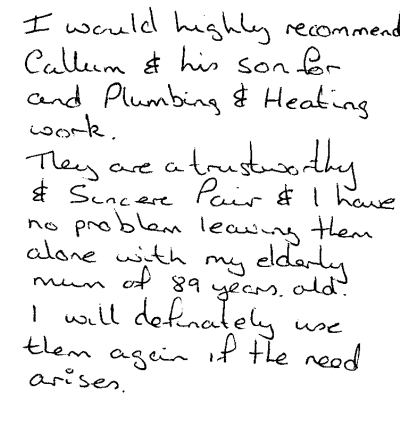 I would highly recommend
Callum & his son for
and Plumbing & Heating
work.
They are a trustworthy
& Sincere Pair & I have
no problem leaving them
alone with my elderly
mum of 89 years. old.
I will definately use
them again if the need
arises.